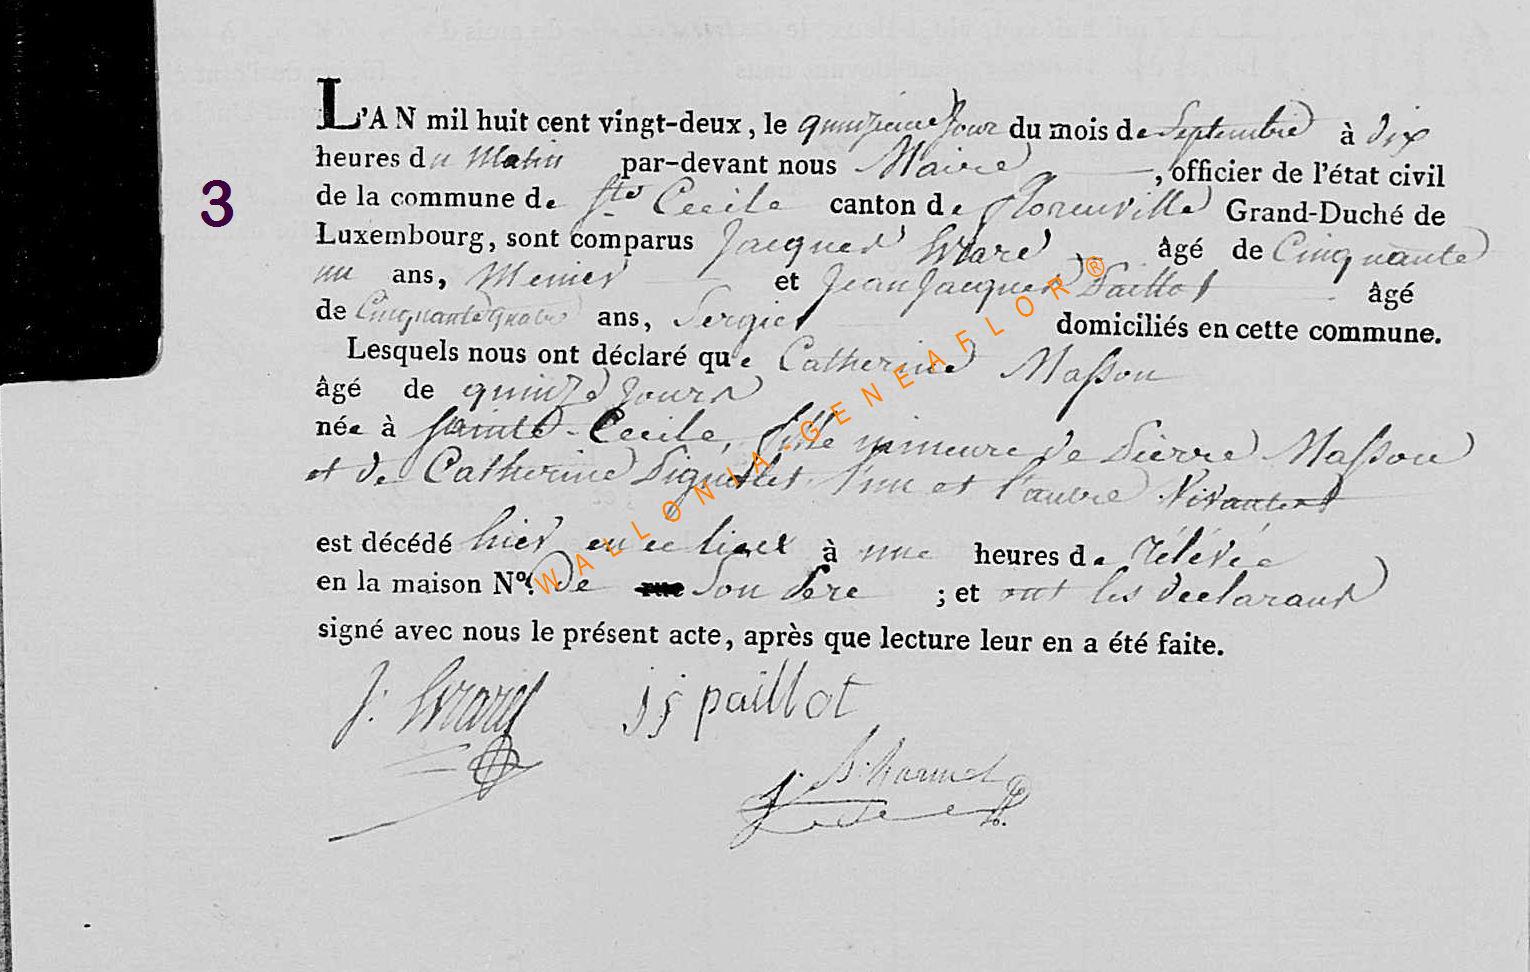 L'AN mil huit cent vingt-deux, le quinzieme Jour du mois de Septembre à dix
heures du Matin par-devant nous Maire, officier de l'état civil
3
de la commune de Ste Cecile canton de florenville Grand-Duché de
Luxembourg, sont comparus Jacques Evrard âgé de Cinquante
un ans, Menier et Jean Jacques Paillot âgé
de Cinquante quatre ans, Sergier domiciliés en cette commune.
Lesquels nous ont déclaré que Catherine Masson
âgé de quinze Jours
née à Sainte-Cecile, fille mineure de Pierre Masson
et de Catherine l'un et l'autre Vivants
est décédé hier en ce lieux à une heures de rélévée
en la maison No. de rue Son Pere ; et ont les declarans
signé avec nous le présent acte, après que lecture leur en a été faite.
J. Evrard jj paillot
WALLONIA-GENEAFLOR®